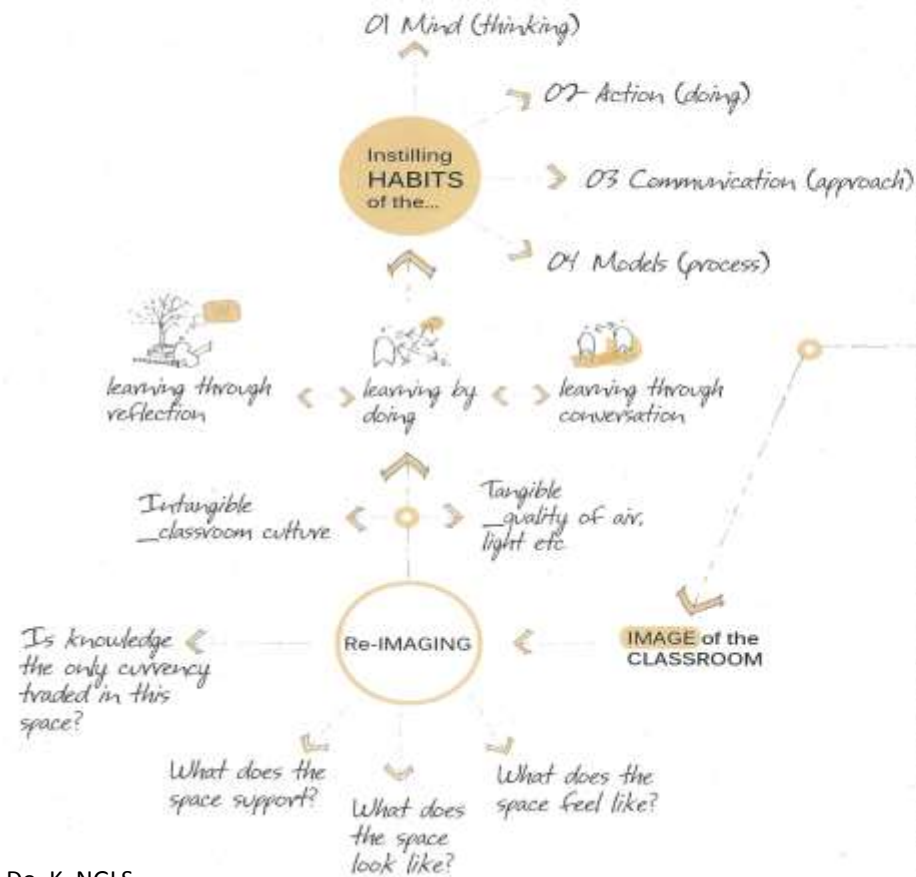 01 Mind (thinking)
02 Action (doing)
Instilling
HABITS
of the...
03 Communication (approach)
04 Models (process)
learning through
reflection
learning by
doing
learning through
conversation
Intangible
_classroom culture
Tangible
_quality of air,
light etc
Re-IMAGING
IMAGE of the
CLASSROOM
Is knowledge
the only currency
traded in this
space?
What does the
space support?
What does
the space
look like?
What does the
space feel like?